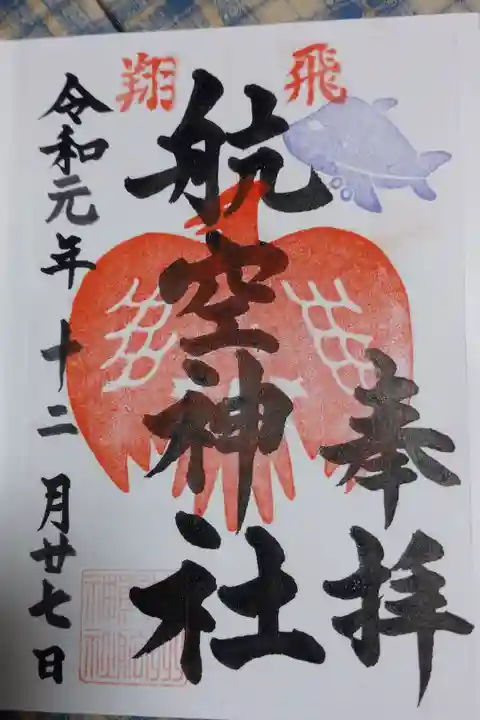 飛翔
奉拝
航空神社
令和元年十二月廿七日